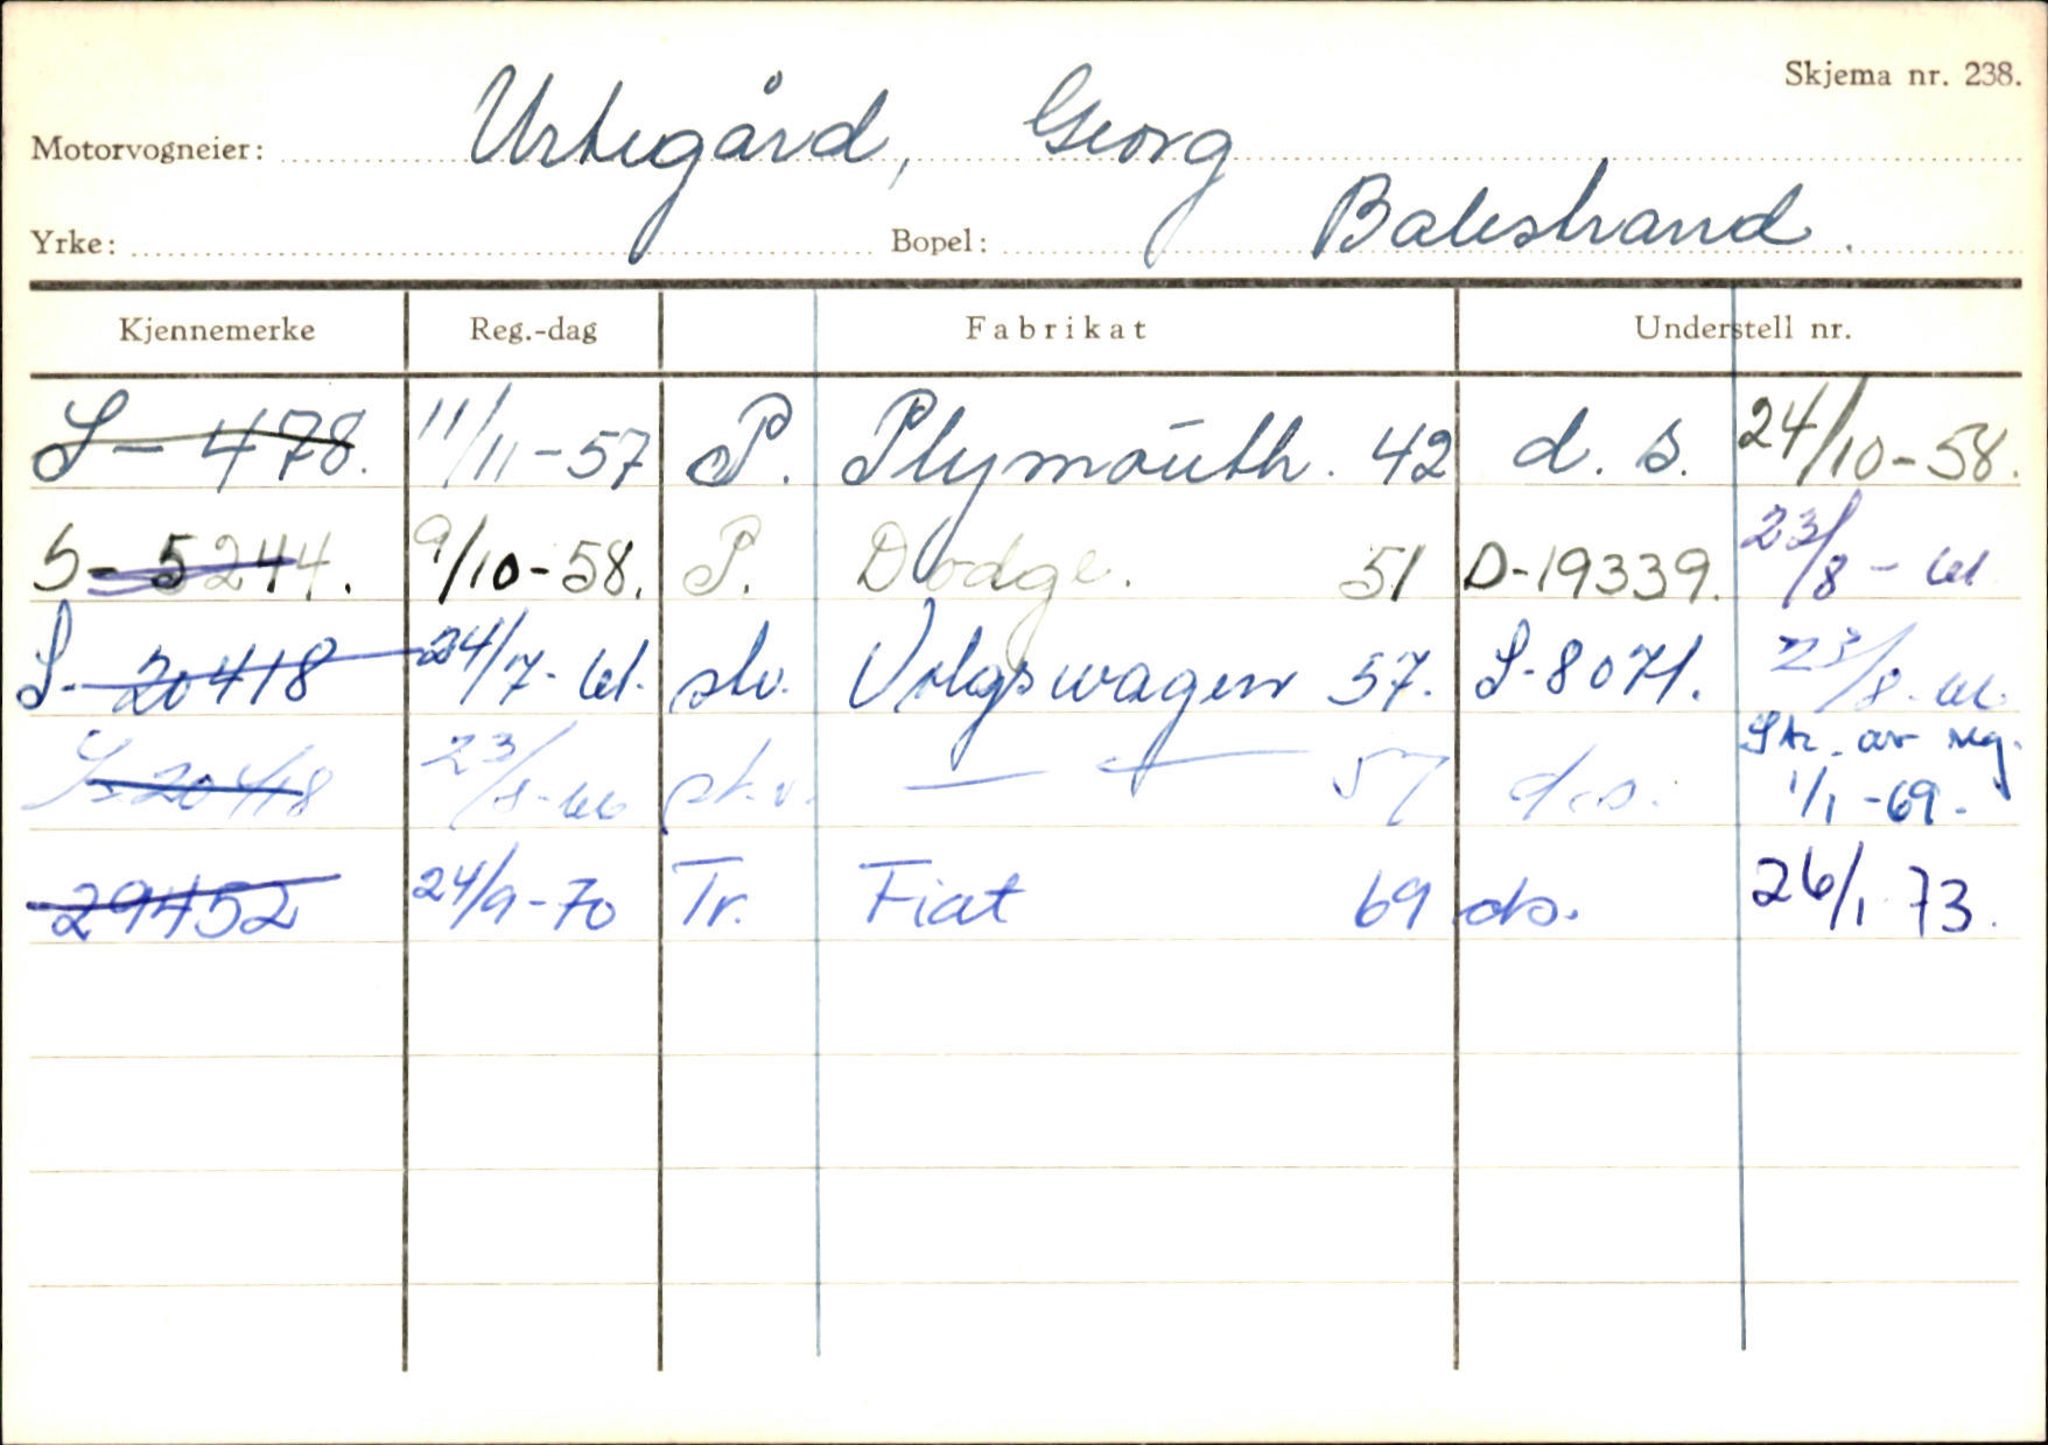 Skjema nr. 238.
Motorvogneier: Urtegård, Georg
Yrke: Bopel: Balestrand.
Kjennemerke Reg.-dag Fabrikat Understell nr.
S-478. 11/11-57 P. Plymouth. 42 d. s. 24/10-58.
S-5244. 9/10-58. P. Dodge. 51 D-19339. 23/8-61
S-20418 24/7-61. stv. Volgswagen 57. S-8071. 23/8-66.
S-20418 23/8-66 57 d.s. Str. av reg. 1/1-69.
29452 24/9-70 Tr. Fiat 69 ds. 26/1 73.